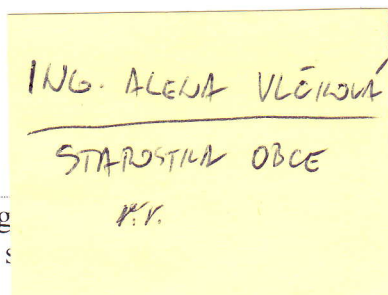 ING. ALENA VLČKOVÁ
STAROSTKA OBCE
v.r.
g
s